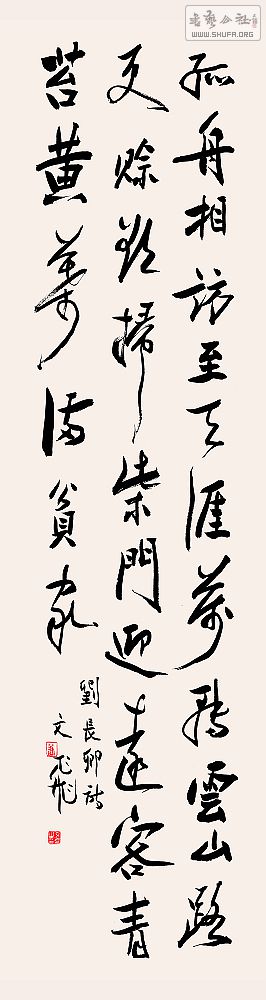 書藝公社
WWW.SHUFA.ORG
孤舟相訪至天涯萬轉雲山路
更賒欲掃柴門迎遠客青
苔黄葉滿貧家
劉長卿詩
文飛